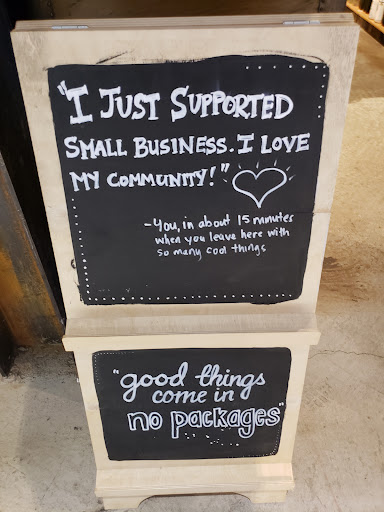 "I JUST SUPPORTED
SMALL BUSINESS. I LOVE
MY COMMUNITY!"
-You, in about 15 minutes
when you leave here with
so many cool things
"good things
come in
no packages"